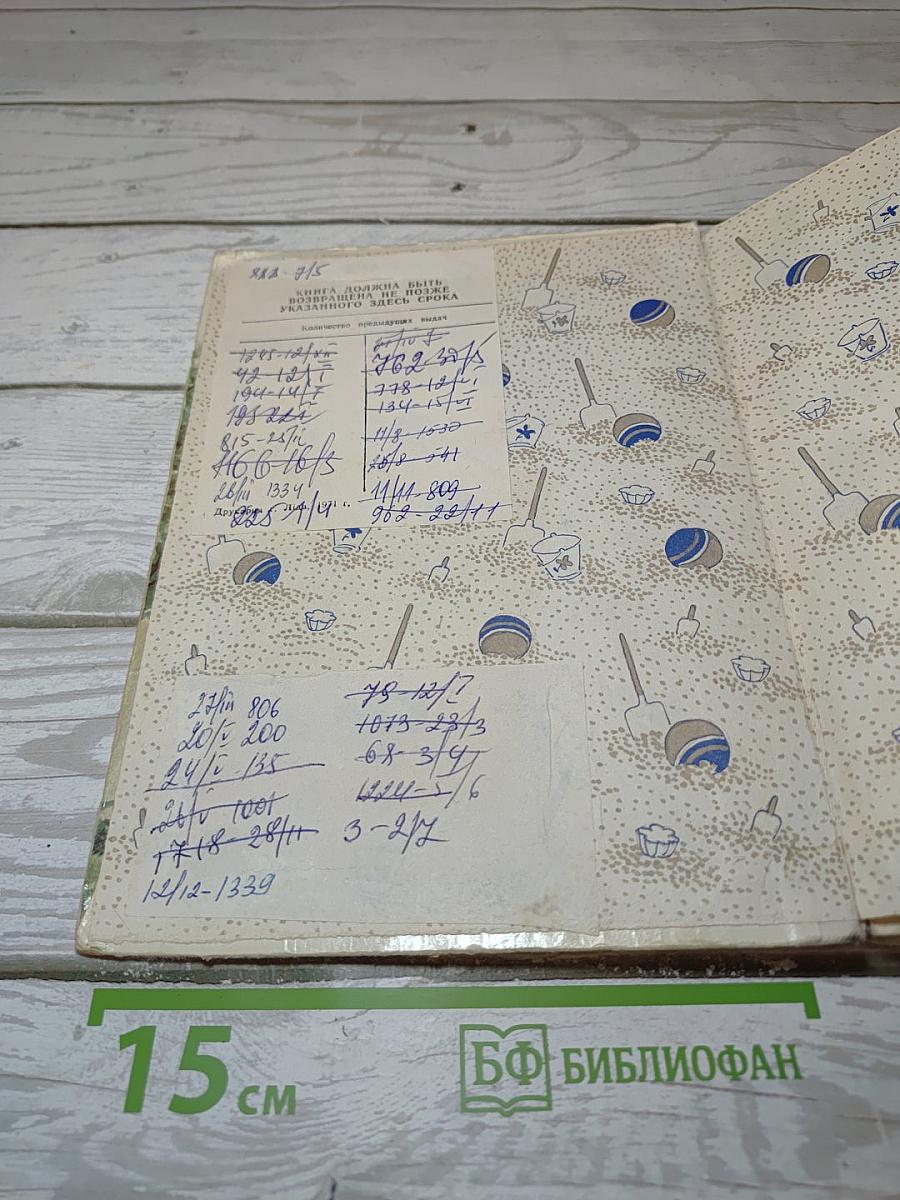 КНИГА ДОЛЖНА БЫТЬ
ВОЗВРАЩЕНА НЕ ПОЗЖЕ
УКАЗАННОГО ЗДЕСЬ СРОКА
Количество предыдущих выдач
1245-12/XII
42-12/I
194-14/I
815-25/II
1166-16/3
26/III 1334
1971 г.
825 1/4
762-30/5
778-12/VI
134-15/VI
11/8-1530
26/8-341
11/11-809
962-22/11
27/III 806
20/V 200
24/V-135
26/V 1001
1718-28/11
12/12-1339
79-12/I
1073-23/3
1224-5/6
3-2/7
15 см
БФ БИБЛИОФАН